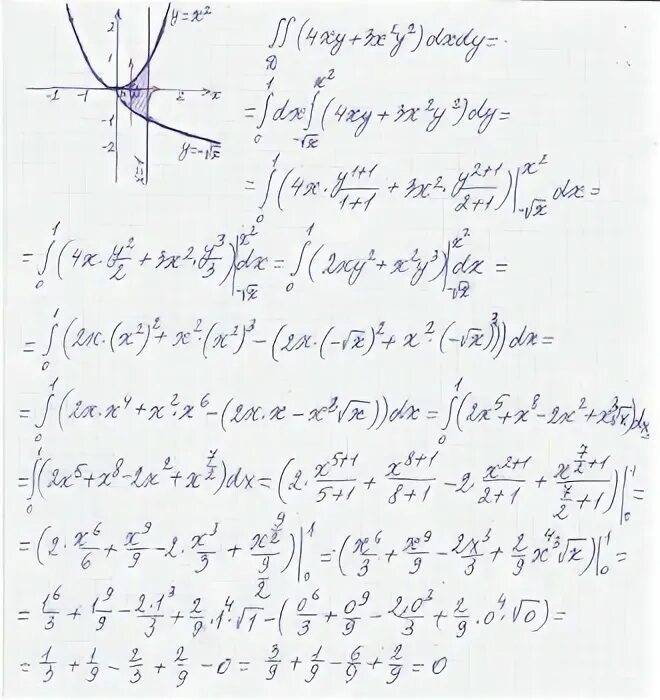 2
1
-1
-1
1
2
x
-1
-2
y=x²
y=-√x
x=1
∬_D (4xy+3x²y²)dxdy=
= ∫₀¹ dx ∫_{-√x}^{x²} (4xy+3x²y²)dy=
= ∫₀¹ (4x·y^{1+1}/(1+1) + 3x²·y^{2+1}/(2+1))|_{-√x}^{x²} dx=
= ∫₀¹ (4x·y²/2 + 3x²·y³/3)|_{-√x}^{x²} dx = ∫₀¹ (2xy²+x²y³)|_{-√x}^{x²} dx =
= ∫₀¹ (2x·(x²)²+x²·(x²)³-(2x·(-√x)²+x²·(-√x)³))dx=
= ∫₀¹ (2x·x⁴+x²·x⁶-(2x·x-x²√x))dx= ∫₀¹ (2x⁵+x⁸-2x²+x³√x)dx=
= ∫₀¹ (2x⁵+x⁸-2x²+x^{7/2})dx=(2·x^{5+1}/(5+1)+x^{8+1}/(8+1)-2·x^{2+1}/(2+1)+x^{7/2+1}/(7/2+1))|₀¹=
=(2·x⁶/6+x⁹/9-2·x³/3+x^{9/2}/(9/2))|₀¹=(x⁶/3+x⁹/9-2x³/3+2/9 x⁴√x)|₀¹=
= 1⁶/3+1⁹/9-2·1³/3+2/9·1⁴·√1-(0⁶/3+0⁹/9-2·0³/3+2/9·0⁴·√0)=
= 1/3+1/9-2/3+2/9-0= 3/9+1/9-6/9+2/9=0